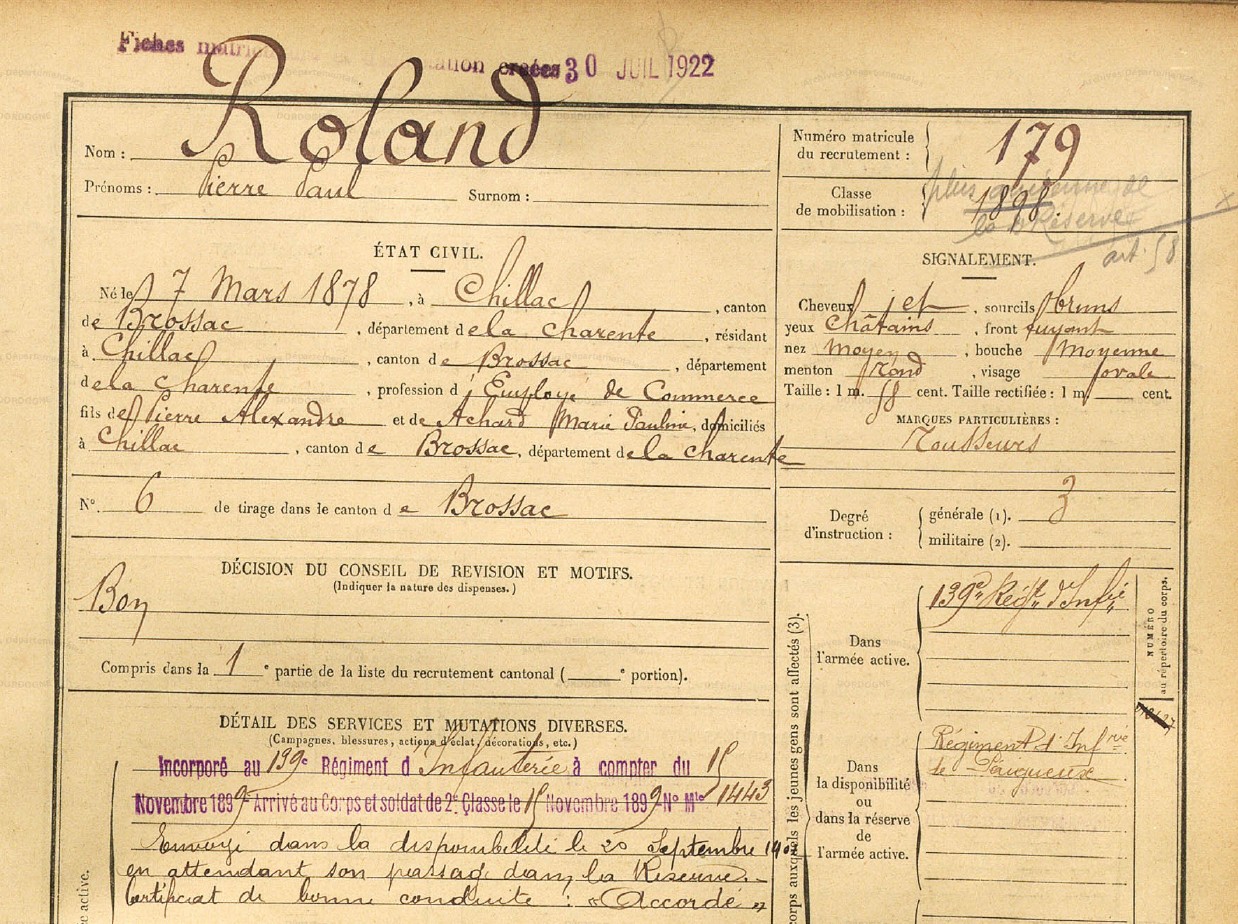 Fiches matricu
ation créées 30 JUIL 1922
Nom : Roland
Prénoms : Pierre Paul Surnom :
Numéro matricule du recrutement : 179
Classe de mobilisation : 1898.
plus de
la Réserve
art. 58
ÉTAT CIVIL.
Né le 7 Mars 1878, à Chillac, canton
de Brossac, département de la Charente, résidant
à Chillac, canton de Brossac, département
de la Charente, profession d'Employé de Commerce
fils de Pierre Alexandre et de Achard Marie Pauline, domiciliés
à Chillac, canton de Brossac, département de la Charente
N°. 6 de tirage dans le canton de Brossac
SIGNALEMENT.
Cheveux jet, sourcils bruns
yeux Châtains, front fuyant
nez moyen, bouche Moyenne
menton rond, visage ovale
Taille : 1 m. 58 cent. Taille rectifiée : 1 m. cent.
MARQUES PARTICULIÈRES :
Rousseurs
Degré d'instruction : générale (1). 3
militaire (2).
DÉCISION DU CONSEIL DE REVISION ET MOTIFS.
(Indiquer la nature des dispenses.)
Bon
Compris dans la 1e partie de la liste du recrutement cantonal ( e portion).
DÉTAIL DES SERVICES ET MUTATIONS DIVERSES.
(Campagnes, blessures, actions d'éclat, décorations, etc.)
Incorporé au 139e Régiment d'Infanterie à compter du 15
Novembre 1899 Arrivé au Corps et soldat de 2e Classe le 15 Novembre 1899 N° Mle 1443
Envoyé dans la disponibilité le 20 Septembre
en attendant son passage dans la Réserve.
Certificat de bonne conduite : « Accordé »
e active.
corps auxquels les jeunes gens sont affectés (3).
Dans l'armée active.
139e Régt. d'Infie
NUMÉRO
au répertoire du corps.
Dans
la disponibilité
ou
dans la réserve
de
l'armée active.
Régiment d'Infrie
de Périgueux